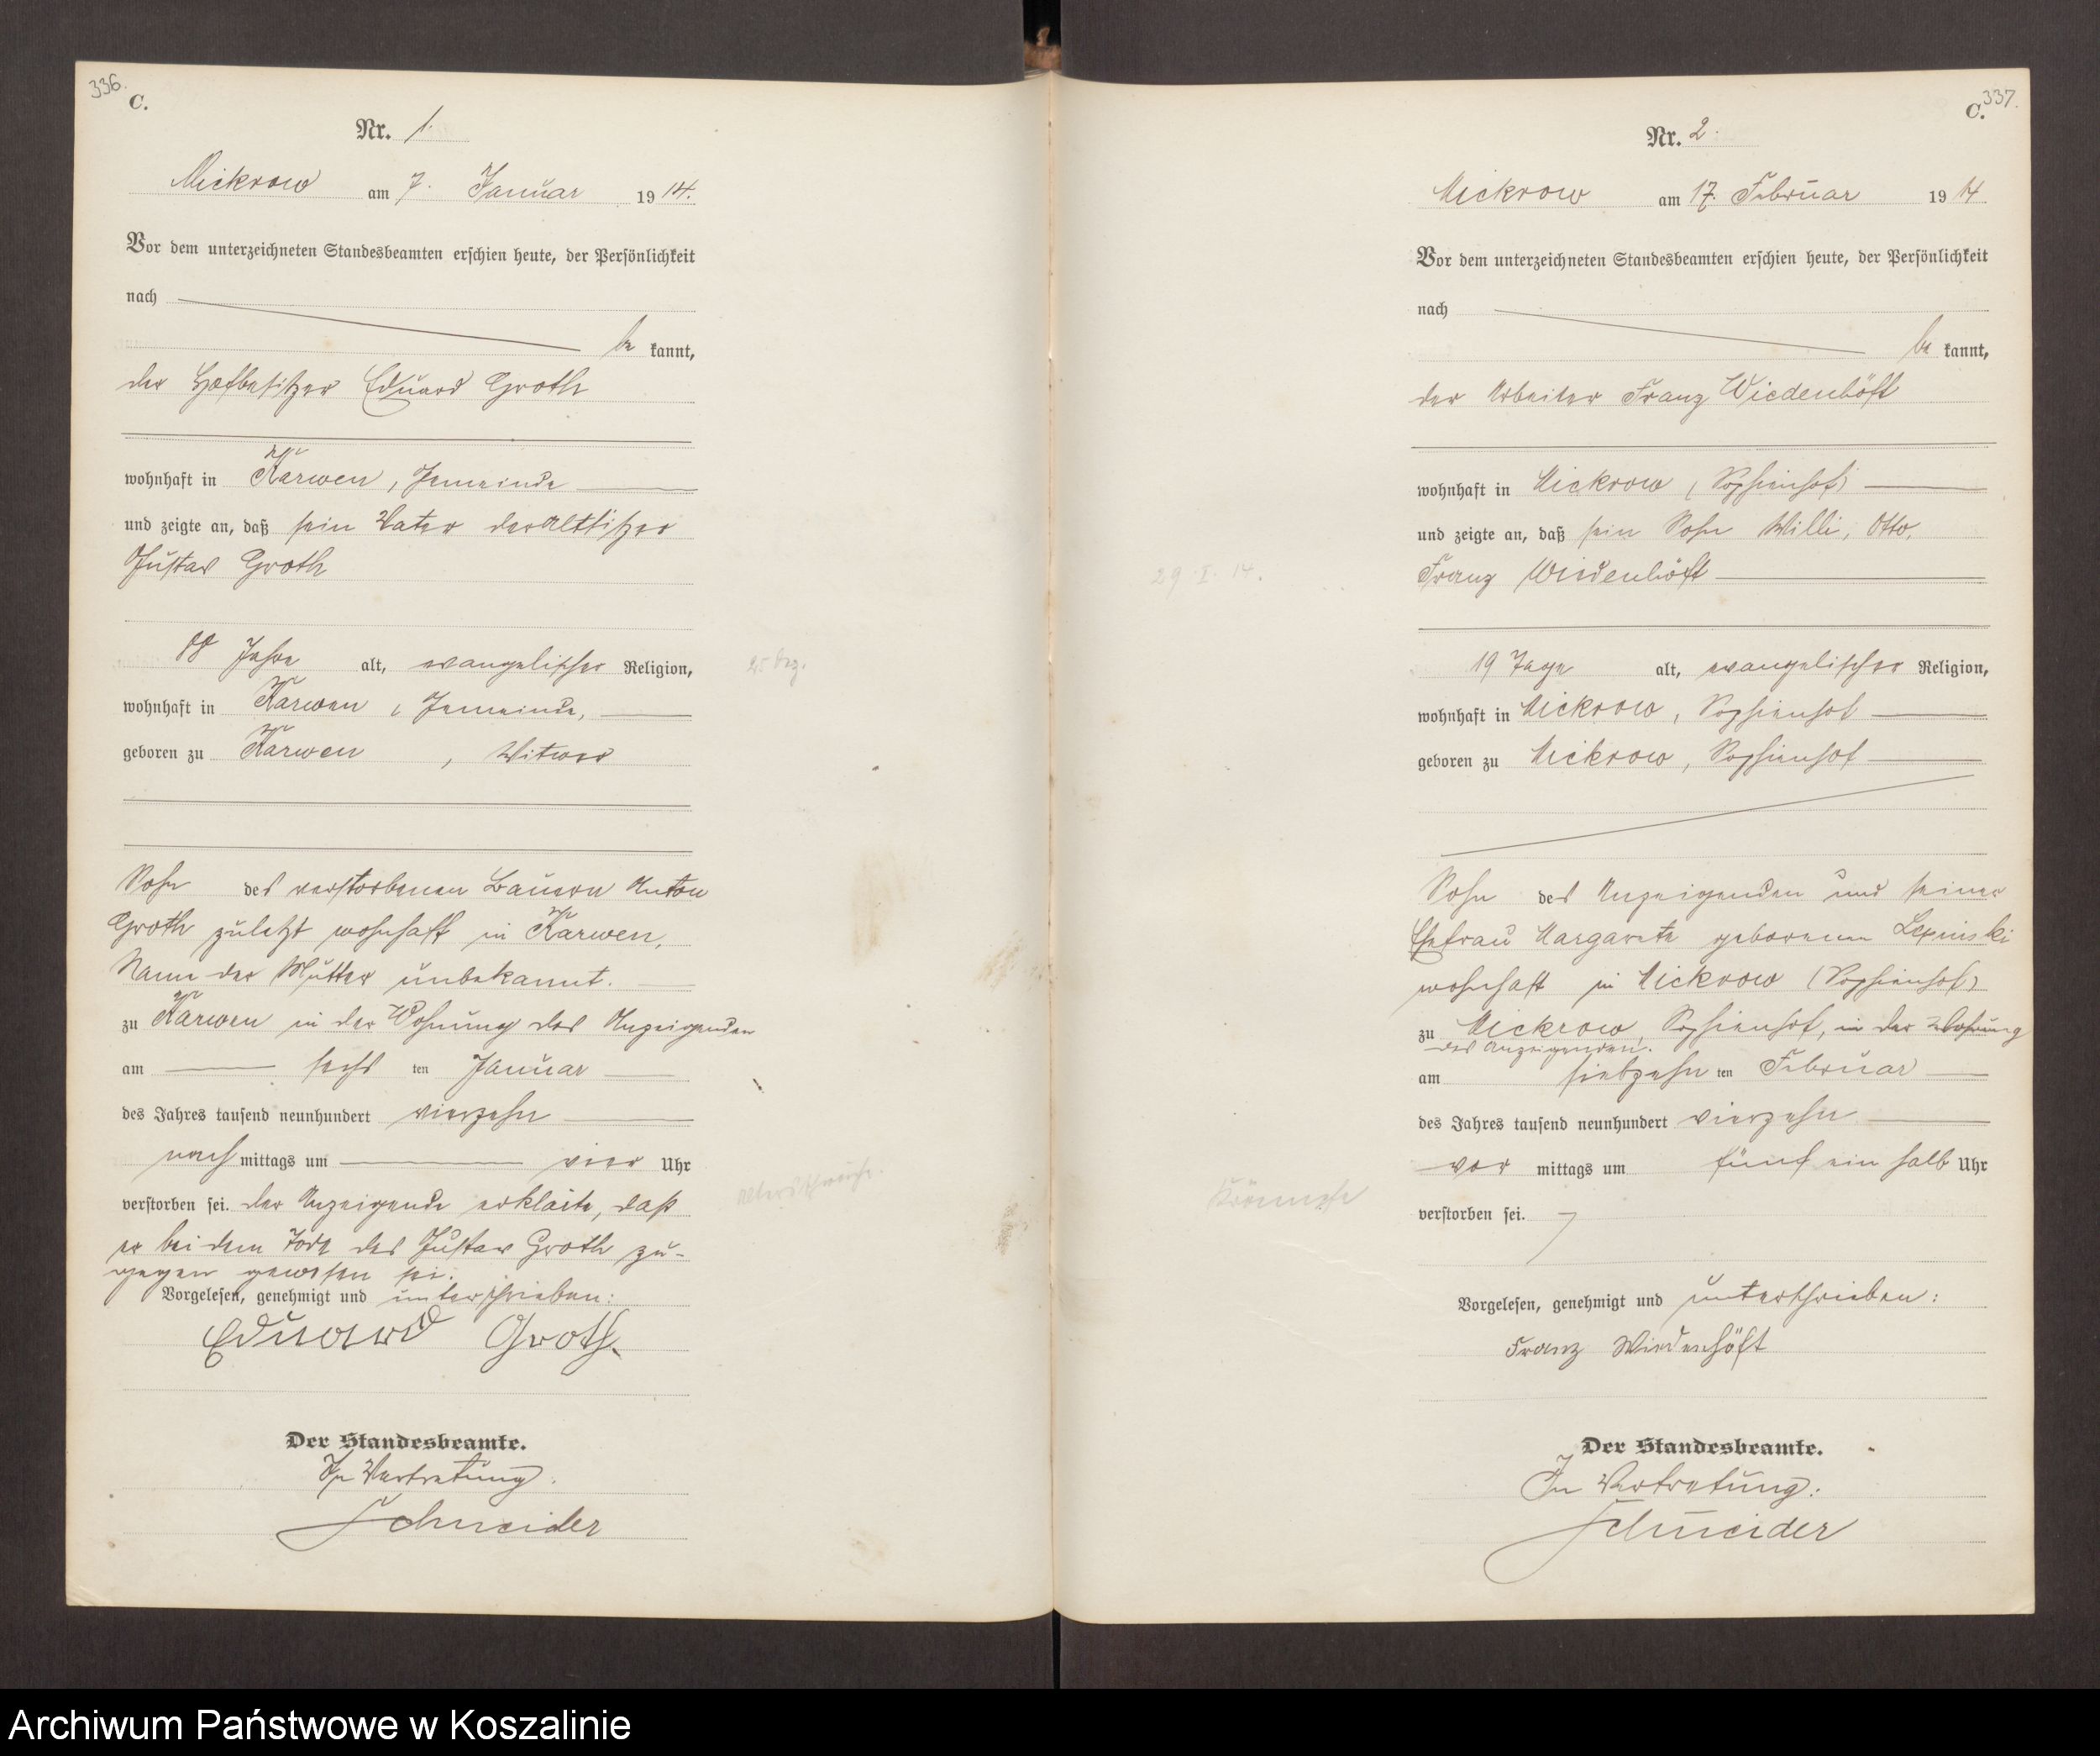 336.
C.
Nr. 1.
Mickrow am 7. Januar 1914.
Vor dem unterzeichneten Standesbeamten erschien heute, der Persönlichkeit
nach
be kannt,
der Hofbesitzer Eduard Groth
wohnhaft in Karwen, Gemeinde
und zeigte an, daß sein Vater der Altsitzer
Gustav Groth
88 Jahre alt, evangelischer Religion,
wohnhaft in Karwen, Gemeinde,
geboren zu Karwen, Witwer
Sohn des verstorbenen Bauern Anton
Groth zuletzt wohnhaft in Karwen,
Name der Mutter unbekannt.
zu Karwen in der Wohnung des Anzeigenden
am sechs ten Januar
des Jahres tausend neunhundert vierzehn
nach mittags um vier Uhr
verstorben sei. Der Anzeigende erklärte, daß
er bei dem Tode des Gustav Groth zu-
gegen gewesen sei.
Vorgelesen, genehmigt und unterschrieben:
Eduard Groth.
Der Standesbeamte.
In Vertretung.
Schneider
Altersschwäche.
337.
C.
Nr. 2.
Mickrow am 17. Februar 1914
Vor dem unterzeichneten Standesbeamten erschien heute, der Persönlichkeit
nach
be kannt,
der Arbeiter Franz Wiedenhöft
wohnhaft in Mickrow (Sophienhof)
und zeigte an, daß sein Sohn Willi, Otto,
29. I. 14.
Franz Wiedenhöft
19 Tage alt, evangelischer Religion,
wohnhaft in Mickrow, Sophienhof
geboren zu Mickrow, Sophienhof
Sohn des Anzeigenden und seiner
Ehefrau Margarete geborenen
wohnhaft in Mickrow (Sophienhof)
zu Mickrow, Sophienhof, in der Wohnung
des Anzeigenden.
am siebzehn ten Februar
des Jahres tausend neunhundert vierzehn
vor mittags um fünf ein halb Uhr
Krämpfe
verstorben sei.
Vorgelesen, genehmigt und unterschrieben:
Franz Wiedenhöft
Der Standesbeamte.
In Vertretung:
Schneider
Archiwum Państwowe w Koszalinie